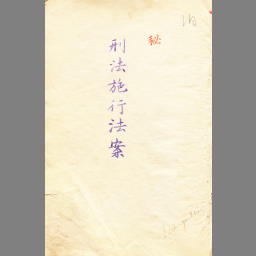 秘
刑法施行法案